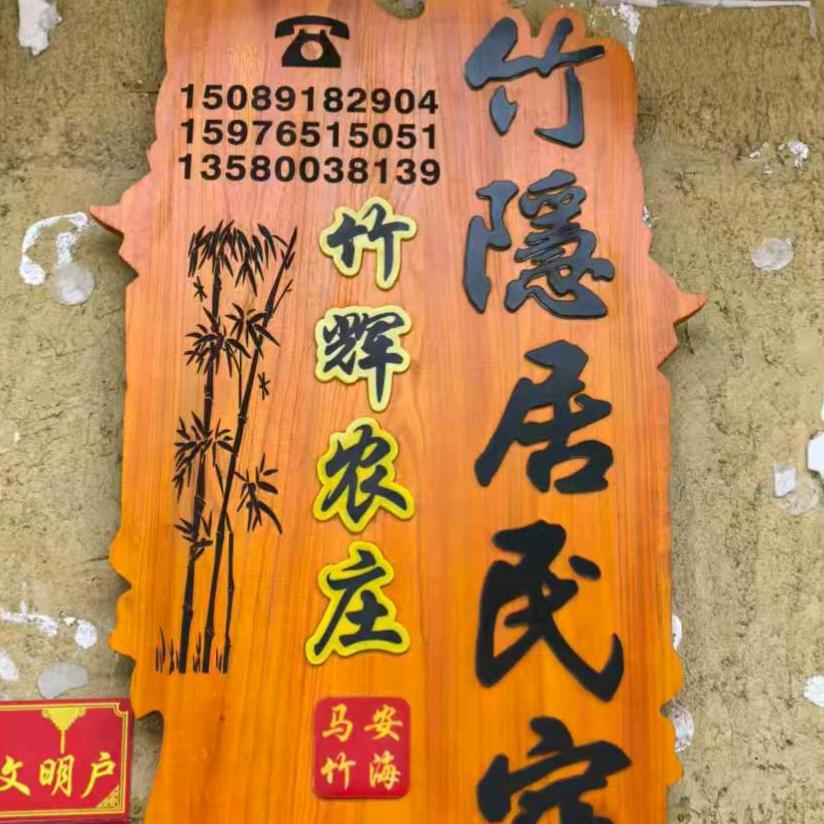 竹隱居民宿
15089182904
15976515051
13580038139
竹辉农庄
马安
竹海
文明户